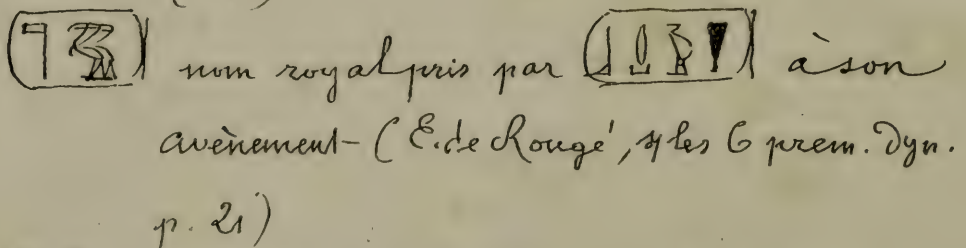 nom royal pris par à son
avènement - (E. de Rougé, les 6 prem. Dyn.
p. 21)